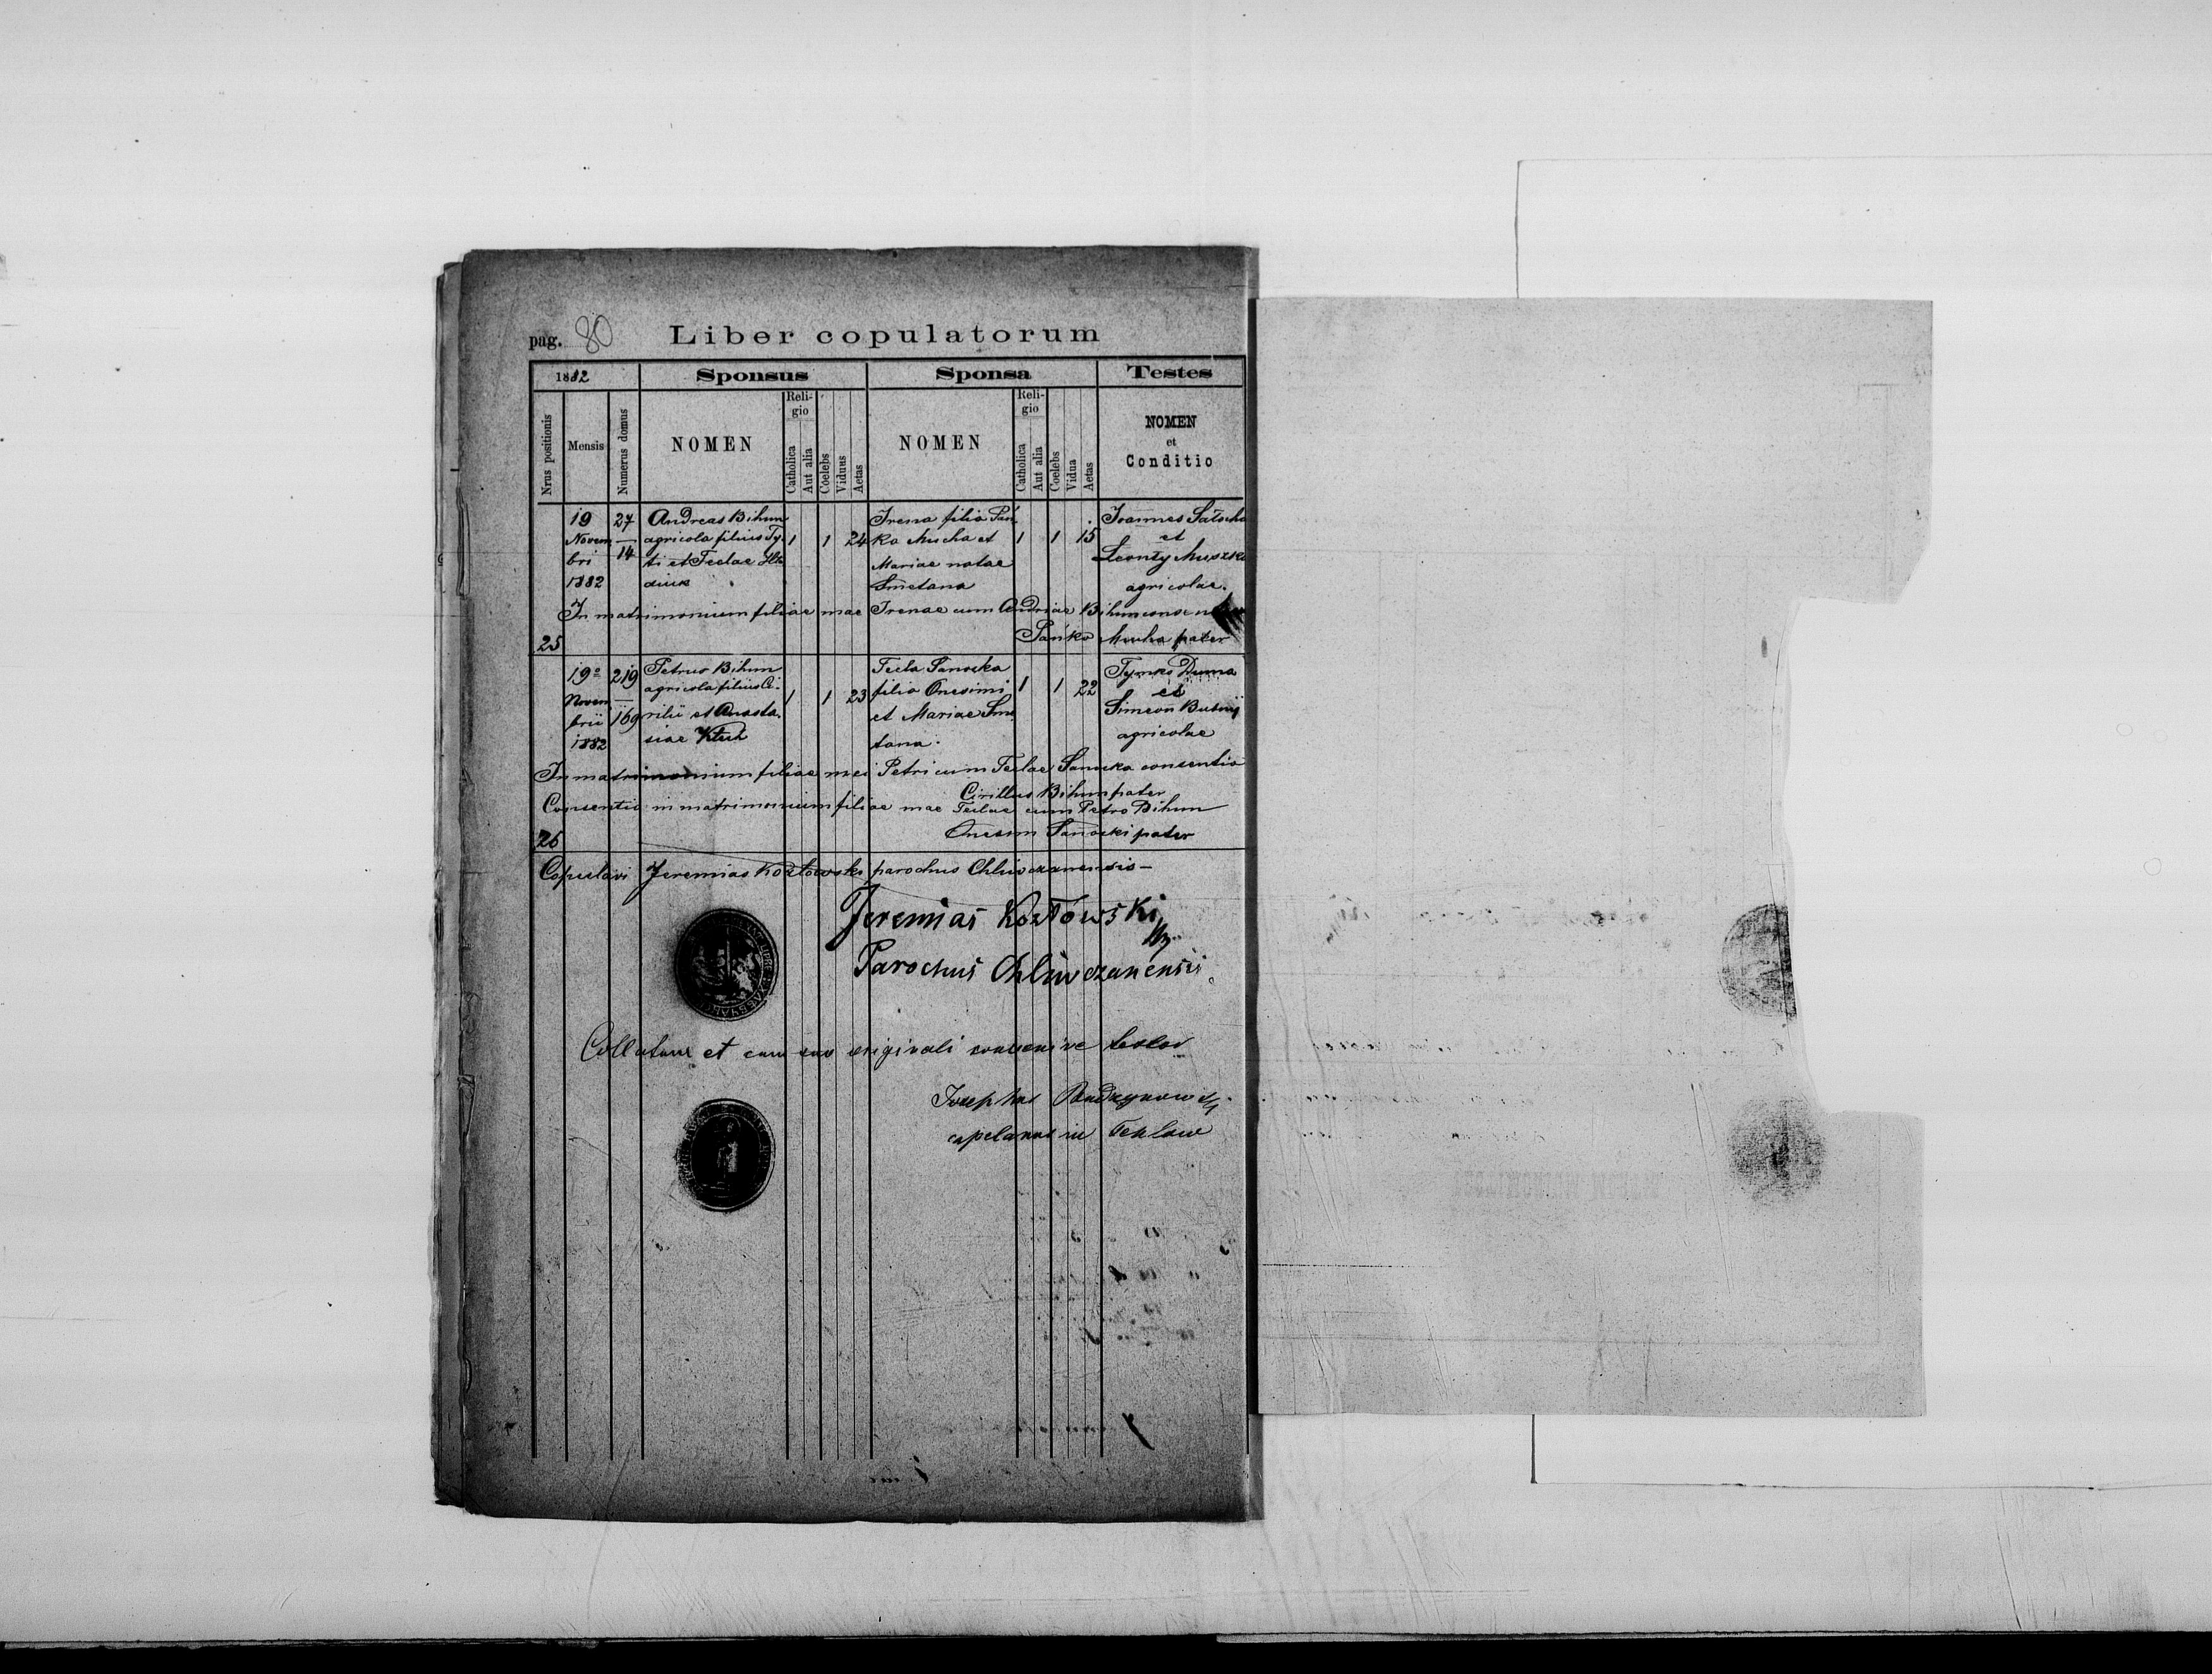 pag. 80 Liber copulatorum
1882 Sponsus Sponsa Testes
Nrus positionis Mensis Numerus domus NOMEN Religio Catholica Aut alia Coelebs Viduus Aetas NOMEN Religio Catholica Aut alia Coelebs Vidua Aetas NOMEN et Conditio
19 27 Andreas Bihun Irena filia Pań Joannes
Novem 14 agricola filius Ty 1 1 24 ko Mucha et 1 1 15 et
bri ti et Teclae Mariae natae Leonty Muszka
1882 Smetana agricolae.
In matrimonium filiae mae Irenae cum Andriae Bihun
25 Pańko Mucha pater
19º 219 Petrus Bihun Tecla Sanocka Tymko Duma
Novem 169 agricola filius Ci- 1 1 23 filia Onesimi 1 1 22 et
brii rilii et Anasta- et Mariae Sme Simeon
1882 siae tana. agricolae
In matrimonium filiae mei Petri cum Teclae Sanocka consentio
Cirillus Bihun pater
Consentio in matrimonium filiae mae Teclae cum Petro Bihun
26 Onesim Sanocki pater
Copulavi Jeremias Kozłowski parochus Chliwczanensis –
Jeremias Kozłowski
Parochus Chliwczanensis
et cum suo originali testor
Josephus
capelanus in